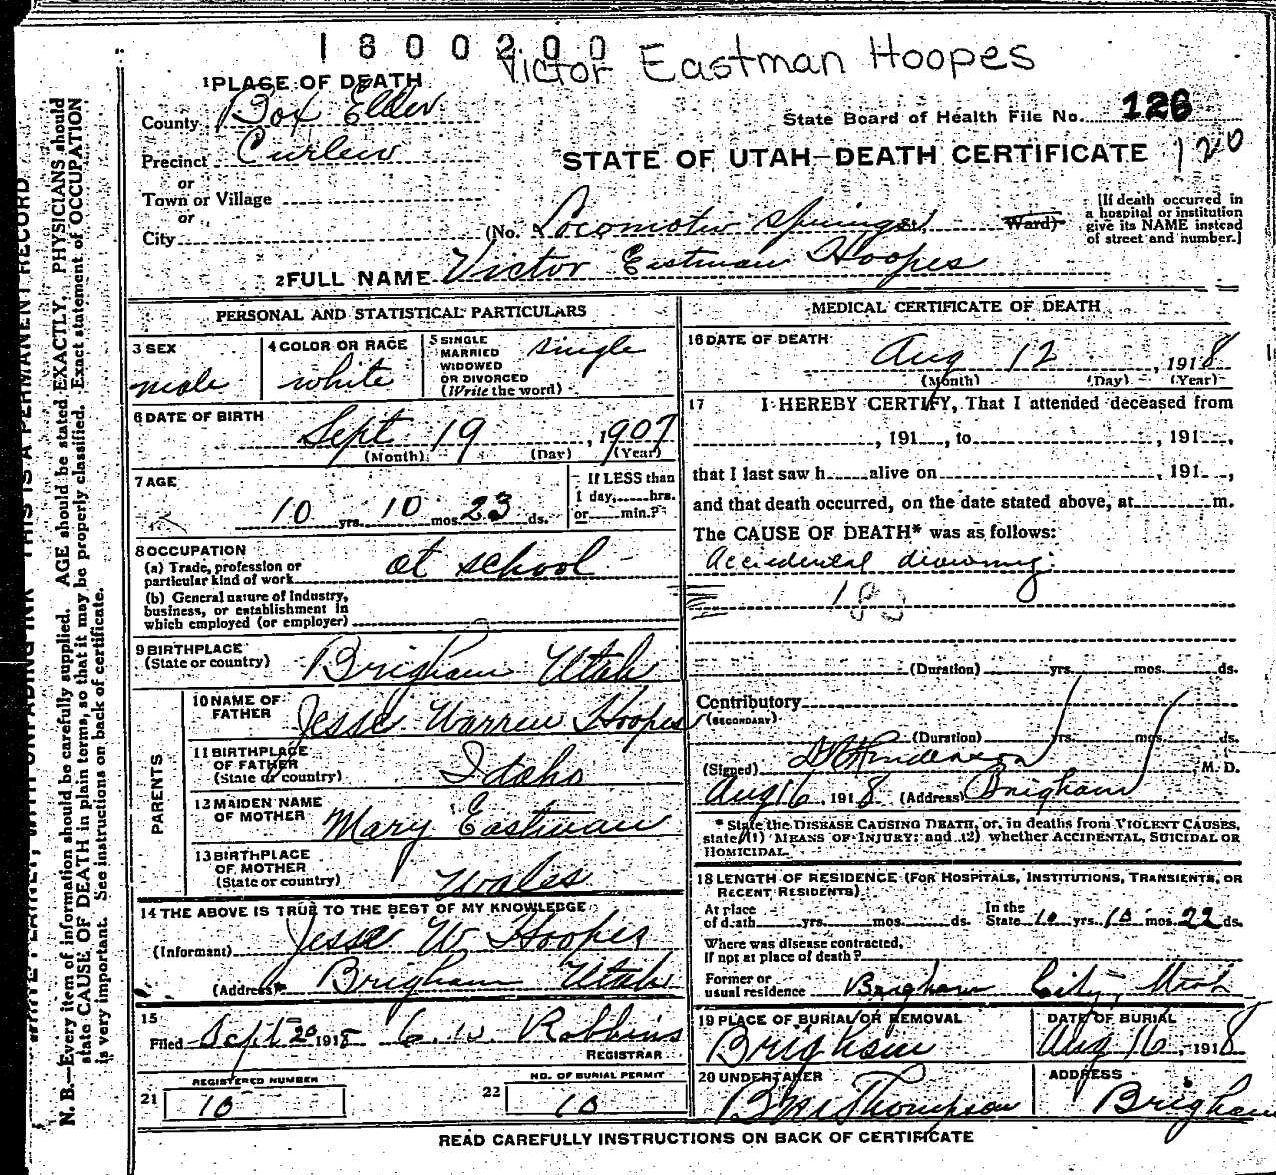 1800200
Victor Eastman Hoopes
1 PLACE OF DEATH
County Box Elder
State Board of Health File No. 126
Precinct Curlew
STATE OF UTAH—DEATH CERTIFICATE 120
or
Town or Village
or
City
(No. Locomotiv Springs St. Ward)
[If death occurred in
a hospital or institution
give its NAME instead
of street and number.]
2 FULL NAME Victor Eastman Hoopes
PERSONAL AND STATISTICAL PARTICULARS
3 SEX
male
4 COLOR OR RACE
white
5 SINGLE
MARRIED
WIDOWED
OR DIVORCED
(Write the word)
single
6 DATE OF BIRTH
Sept 19, 1907
(Month) (Day) (Year)
7 AGE
10 yrs. 10 mos. 23 ds.
If LESS than
1 day, hrs.
or min.?
8 OCCUPATION
(a) Trade, profession or
particular kind of work at school
(b) General nature of Industry,
business, or establishment in
which employed (or employer)
9 BIRTHPLACE
(State or country) Brigham Utah
PARENTS
10 NAME OF
FATHER Jesse Warren Hoopes
11 BIRTHPLACE
OF FATHER
(State or country) Idaho
12 MAIDEN NAME
OF MOTHER Mary Eastman
13 BIRTHPLACE
OF MOTHER
(State or country) Wales
14 THE ABOVE IS TRUE TO THE BEST OF MY KNOWLEDGE
(Informant) Jesse W Hoopes
(Address) Brigham Utah
15
Filed Sept 20 1918 C. W. Robbins
REGISTRAR
REGISTERED NUMBER
21 10
NO. OF BURIAL PERMIT
22 10
MEDICAL CERTIFICATE OF DEATH
16 DATE OF DEATH
Aug 12, 1918
(Month) (Day) (Year)
17 I HEREBY CERTIFY, That I attended deceased from
, 191 , to , 191 ,
that I last saw h alive on , 191 ,
and that death occurred, on the date stated above, at m.
The CAUSE OF DEATH* was as follows:
Accidental drowning.
183
(Duration) yrs. mos. ds.
Contributory
(SECONDARY)
(Duration) yrs. mos. ds.
(Signed) M. D.
Aug 16, 1918 (Address) Brigham
* State the DISEASE CAUSING DEATH, or, in deaths from VIOLENT CAUSES,
state (1) MEANS OF INJURY; and (2) whether ACCIDENTAL, SUICIDAL OR
HOMICIDAL.
18 LENGTH OF RESIDENCE (FOR HOSPITALS, INSTITUTIONS, TRANSIENTS, OR
RECENT RESIDENTS)
At place
of death yrs. mos. ds.
In the
State 10 yrs. 10 mos. 22 ds.
Where was disease contracted,
If not at place of death?
Former or
usual residence Brigham City, Utah
19 PLACE OF BURIAL OR REMOVAL
Brigham
DATE OF BURIAL
Aug 16, 1918
20 UNDERTAKER
Thompson
ADDRESS
Brigham
READ CAREFULLY INSTRUCTIONS ON BACK OF CERTIFICATE
WRITE PLAINLY, WITH UNFADING INK—THIS IS A PERMANENT RECORD
N. B.—Every item of information should be carefully supplied. AGE should be stated EXACTLY. PHYSICIANS should
state CAUSE OF DEATH in plain terms, so that it may be properly classified. Exact statement of OCCUPATION
is very important. See instructions on back of certificate.